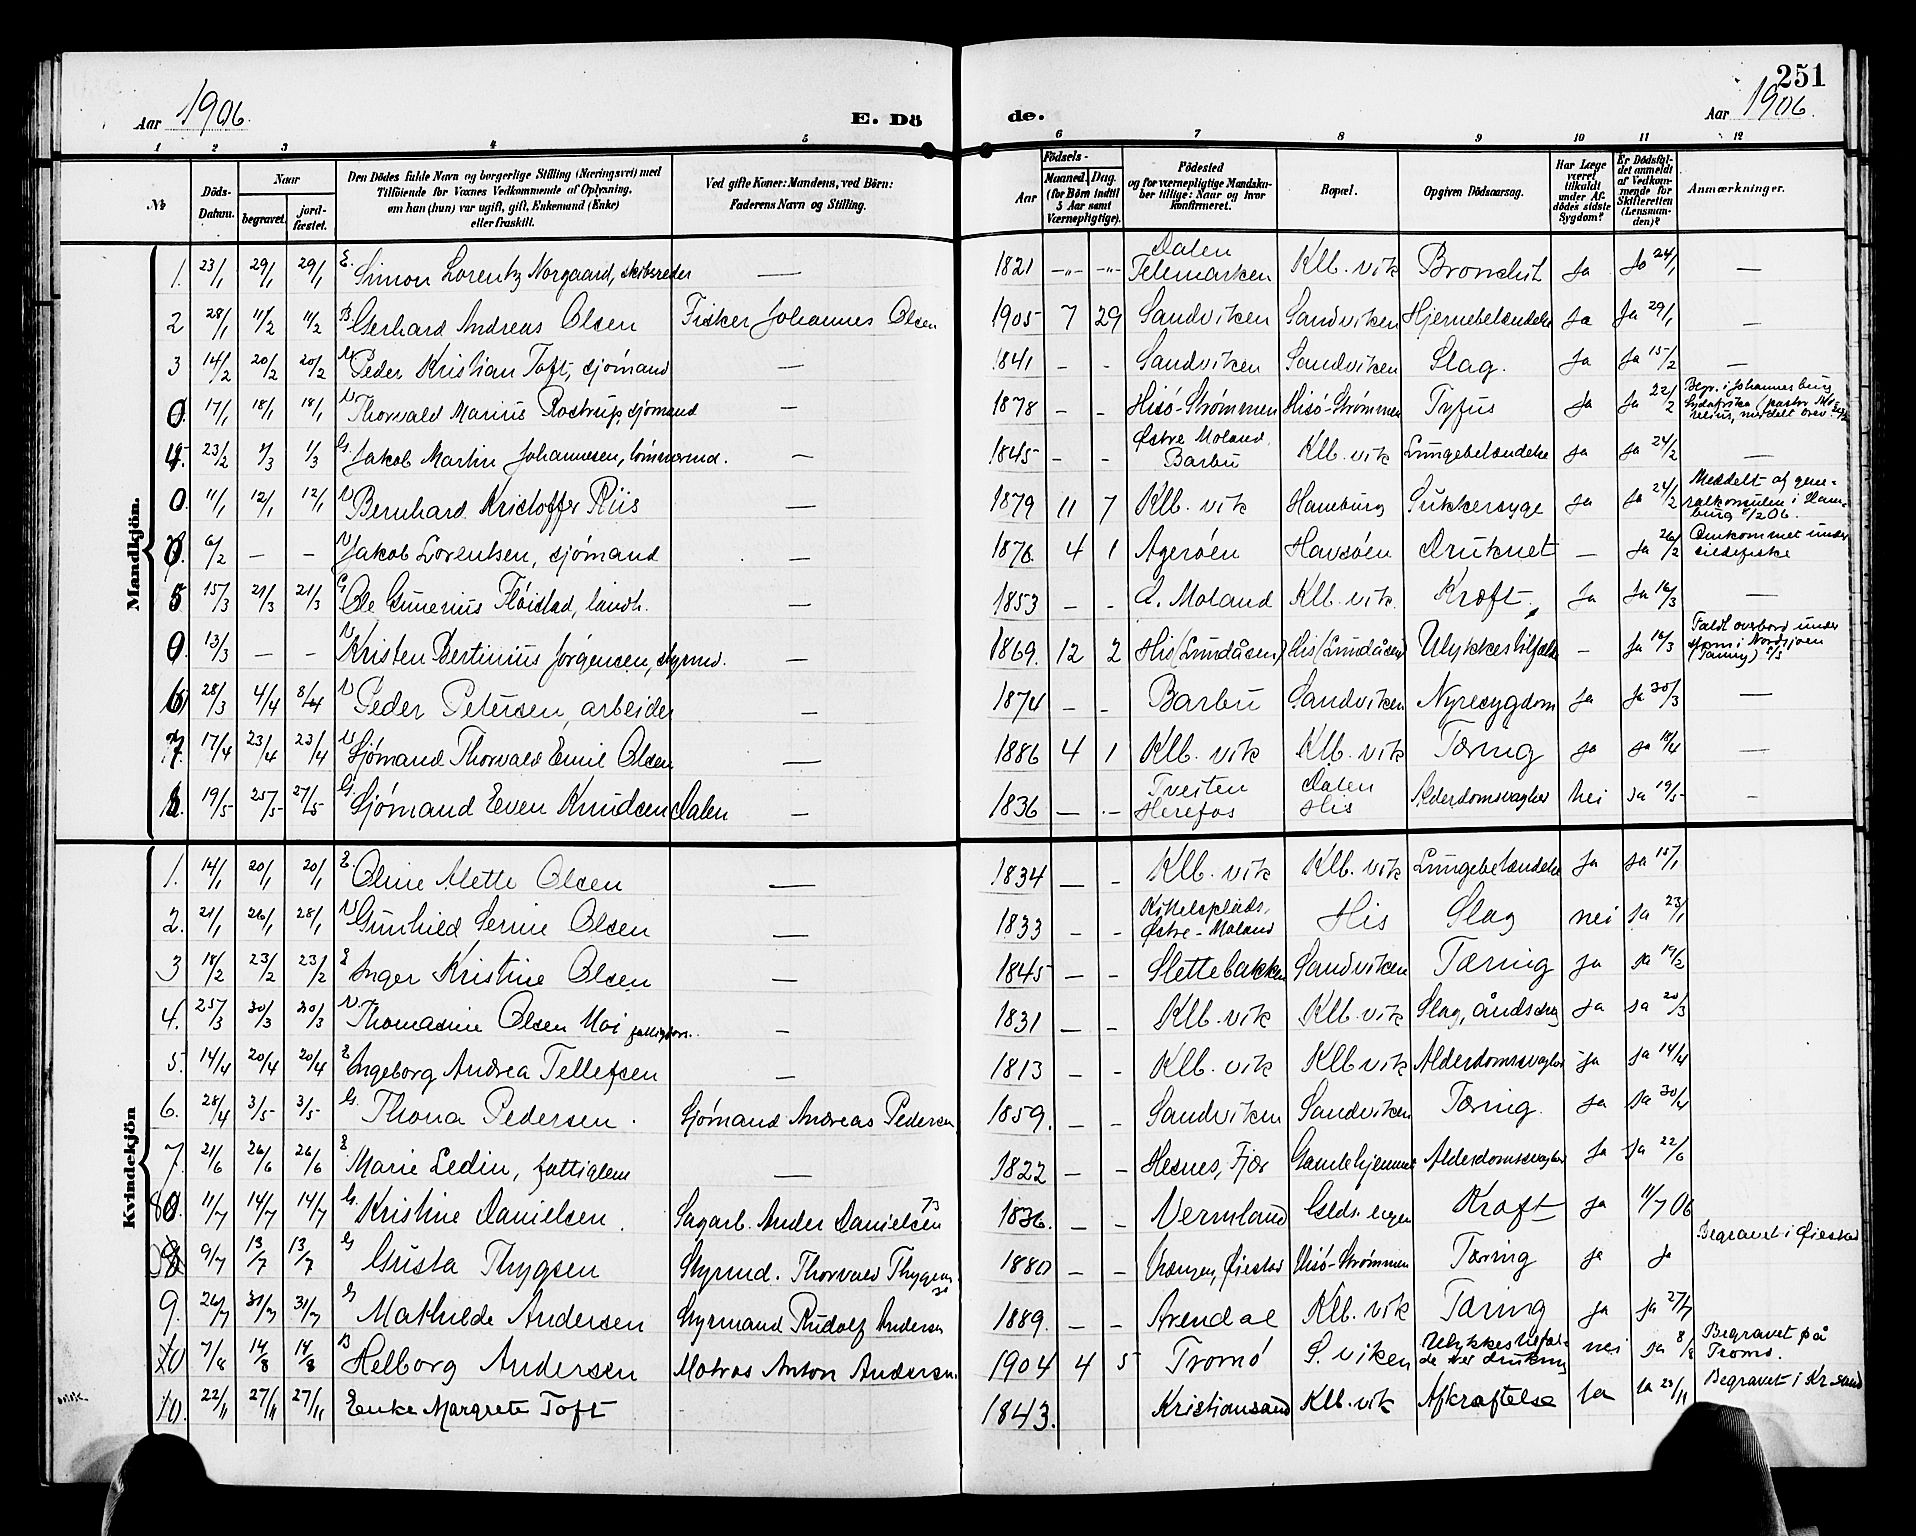 251
Aar 1906.
E. Dö
de.
Aar 1906.
1 2 3 4 5 6 7 8 9 10 11 12
№
Döds-Datum.
Naar
begravet.
jord-fæstet.
Den Dödes fulde Navn og borgerlige Stilling (Næringsvei) med
Tilföiende for Voxnes Vedkommende af Oplysning,
om han (hun) var ugift, gift, Enkemand (Enke)
eller fraskilt.
Ved gifte Koner: Mandens, ved Börn:
Faderens Navn og Stilling.
Födsels-
Aar
Maaned. Dag.
(for Börn indtil
5 Aar samt
Værnepligtige).
Födested
og for værnepligtige Mandska-
ber tillige: Naar og hvor
konfirmeret.
Bopæl.
Opgiven Dödsaarsag.
Har Læge
været
tilkaldt
under Af-
dödes sidste
Sygdom?
Er Dödsfal-
det anmeldt
af Vedkom-
mende for
Skifteretten
(Lensman-
den)?
Anmærkninger.
Mandkjön.
1. 23/1 29/1 29/1 E. Simon Lorentz Norgaard, skibsreder — 1821 -"- -"- Dalen Telemarken Klb. vik Bronchit Ja Ja 24/1 —
2 28/1 11/2 11/2 B. Gerhard Andreas Olsen Fisker Johannes Olsen 1905 7 29 Sandviken Sandviken Hjernebetændelse Ja Ja 29/1 —
3 14/2 20/2 20/2 Peder Kristian Toft, sjømand — 1841 - - Sandviken Sandviken Slag. Ja Ja 15/2 —
0. 17/1 18/1 18/1 U Thorvald Marius Rostrup, sjømand — 1878 - - Hisø-Strømmen Hisø-Strømmen Tyfus Ja Ja 22/2 Begr. i Johannesburg Sydafrika
4. 23/2 1/3 1/3 G. Jakob Martin Johannesen, tømmermd. — 1845 - - Østre Moland, Barbu Klb. vik Lungebetændelse Ja Ja 24/2 —
0 11/1 12/1 12/1 U Bernhard Kristoffer Riis — 1879 11 7 Klb. vik Hamburg Sukkersyge Ja Ja 24/2 Meddelt af gene-ralkonsulen i Ham-burg
0. 6/2 — — U Jakob Lorentsen, sjømand — 1876. 4 1 Agerøen Havsøen Druknet — Ja 26/2 Omkommet under sildefiske
5 15/3 21/3 21/3 G Ole Gunerius Fløistad, landh. — 1853 - - Ø. Moland Klb. vik. Kræft. Ja Ja 16/3 —
0. 13/3 — — U Kristen Bertinius Jørgensen, styrmd. — 1869. 12 2 His (Lundåsen) His (Lundåsen) Ulykkestilfælde - Ja 16/3 Faldt overbord under storm i Nordsjøen
6 28/3 4/4 8/4 U Peder Petersen, arbeider — 1874 - - Barbu Sandviken Nyresygdom Ja Ja 30/3 —
7. 17/4 23/4 23/4 U Sjømand Thorvald Emil Olsen — 1886 4 1 Klb. vik Klb. vik Tæring Ja Ja 18/4 —
8. 19/5 25/5 27/5 G. Sjømand Even Knudsen Dalen — 1836 — - Tveiten Herefos Dalen His Alderdomsvaghed Nei Ja 19/5 -
Kvindekjön
1. 14/1 20/1 20/1 E. Oline Alette Olsen — 1834 — - Klb. vik Klb. vik Lungebetændelse Ja Ja 15/1
2. 21/1 26/1 28/1 U Gunhild Serine Olsen — 1833 - - Kittelsplads, Østre-Moland His Slag nei Ja 23/1
3 18/2 23/2 23/2 E Inger Kristine Olsen — 1845 — - Slettebakken Sandviken Tæring Ja Ja 19/2
4. 25/3 30/3 30/3 U. Thomasine Olsen Moi — 1831 — - Klb. vik Klb. vik Slag, Ja Ja 20/3
5. 14/4 20/4 20/4 E Ingeborg Andrea Tellefsen — 1813 — - Klb. vik Klb vik Alderdomsvaghed Ja Ja 14/4
6. 28/4 3/5 3/5 G. Thona Pedersen. Sjømand Andreas Pedersen 1859. — - Sandviken Sandviken Tæring. Ja Ja 30/4
7. 21/6 26/6 26/6 E Marie Ledin, fattiglem — 1822 — - Hesnes, Fjær Gamlehjemmet Alderdomsvaghed Ja Ja 22/6
8 11/7 14/7 14/7 G. Kristine Danielsen. Sagarb. Ander Danielsen 1836. — - Vermland Kræft Ja 11/7 06
0 9/7 13/7 13/7 G Gusta Thygsen Styrmd. Thorvald Thygsen 1880 — - Vrængen, Øiestad Hisø-Strømmen Tæring Ja Ja Begravet i Øiestad
9. 26/7 31/7 31/7 G Mathilde Andersen Styrmand Rudolf Andersen 1889. — - Arendal Klb. vik Tæring Ja Ja 27/7
0 7/8 14/8 14/8 B Helborg Andersen Matros Anton Andersen. 1904 4 5 Tromø S. viken nei Ja 8/8 Begravet på Tromø.
10. 22/11 27/11 27/11 Enke Margrete Toft - 1843. Kristiansand Klb. vik Afkræftelse Ja Ja 23/11 Begravet i Kr. sand